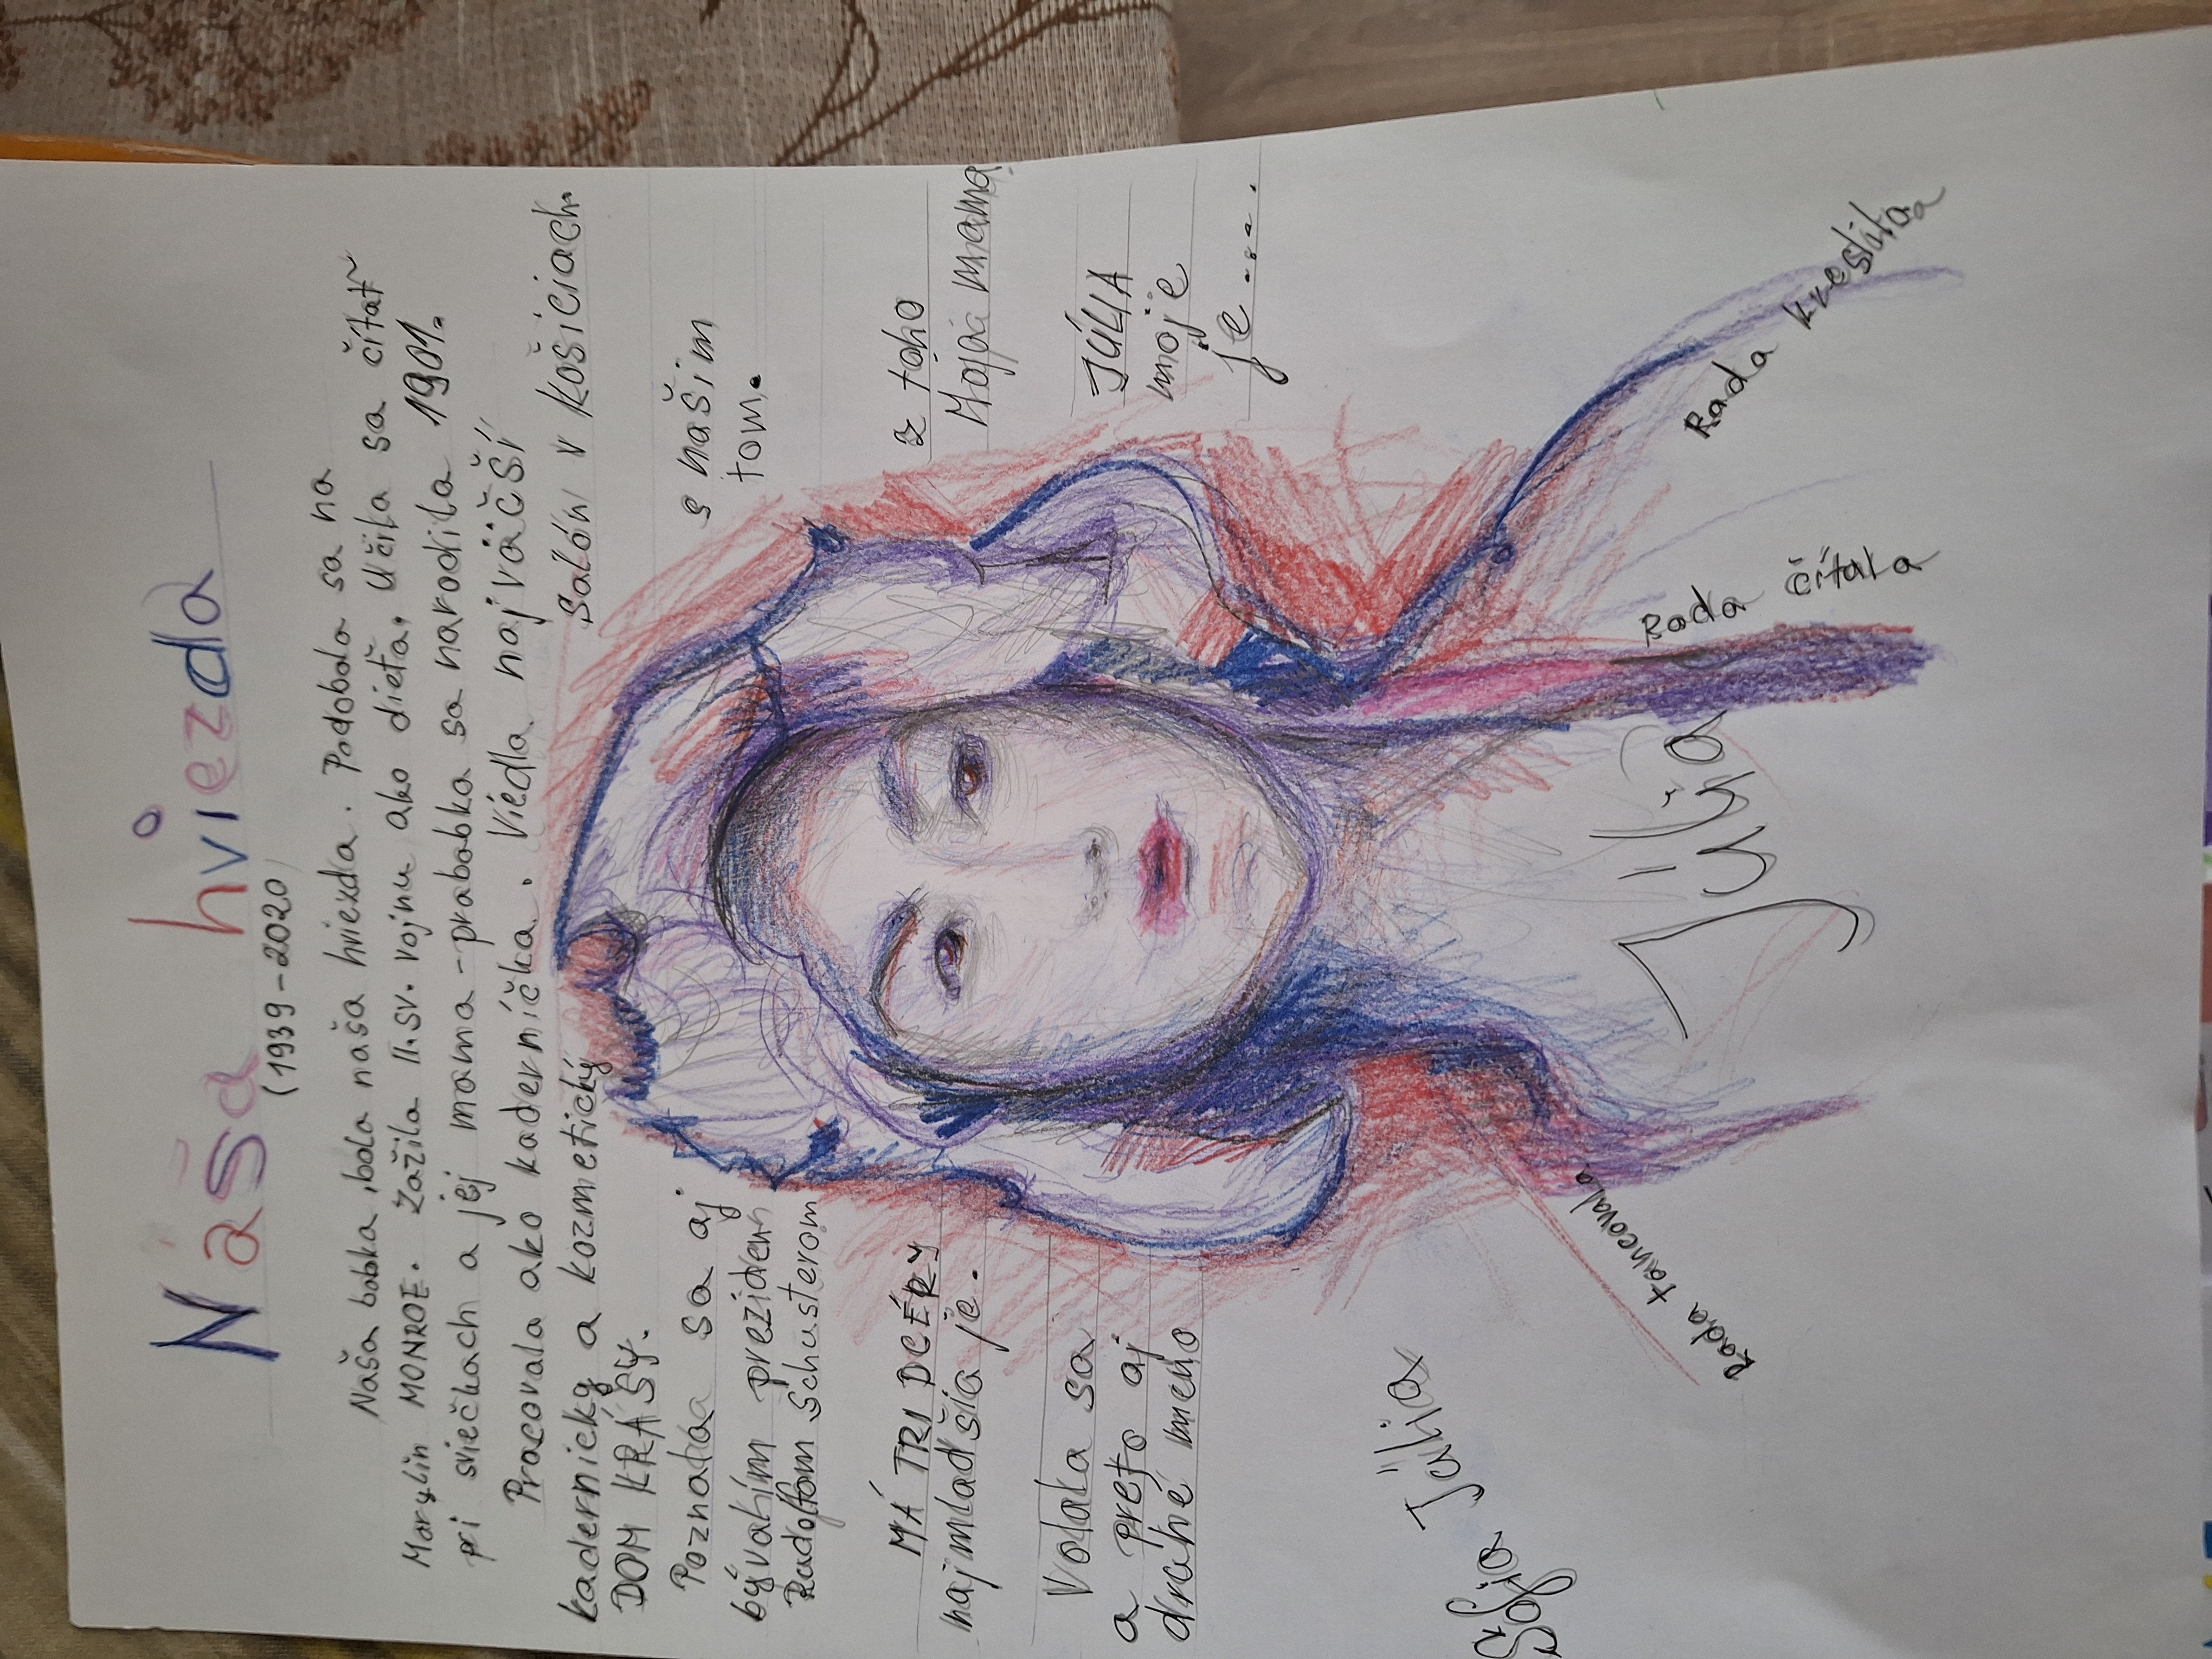 Naša hviezda
(1939-2020)
Naša babka, bola naša hviezda. Podobala sa na
Marylin MONROE. Zažila II.sv. vojnu ako dieťa. Učila sa čítať
pri sviečkach a jej mama-prababka sa narodila 1901.
Pracovala ako kaderníčka. Viedla najväčší
kadernícky a kozmetický salón v Košiciach.
DOM KRÁSY.
Poznala sa aj s naším
bývalím prezidentom.
Rudolfom Schusterom
MÁ TRI DCÉRY z toho
najmladšia je. Moja mama.
Volala sa JÚLIA
a preto aj moje
druhé imeno je ....
Sofia Júlia
Júlia
Rada tancovala
Rada čítala
Rada kreslila